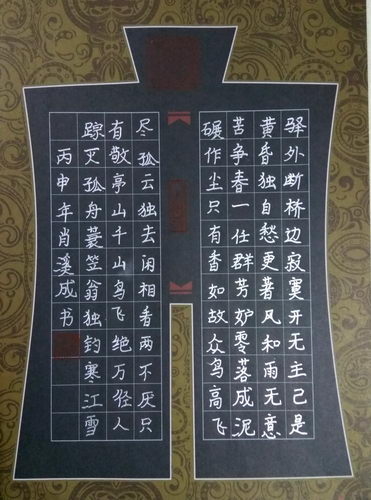 驿外断桥边寂寞开无主已是
黄昏独自愁更著风和雨无意
苦争春一任群芳妒零落成泥
碾作尘只有香如故众鸟高飞
尽孤云独去闲相看两不厌只
有敬亭山千山鸟飞绝万径人
踪灭孤舟蓑笠翁独钓寒江雪
丙申年肖溪成书